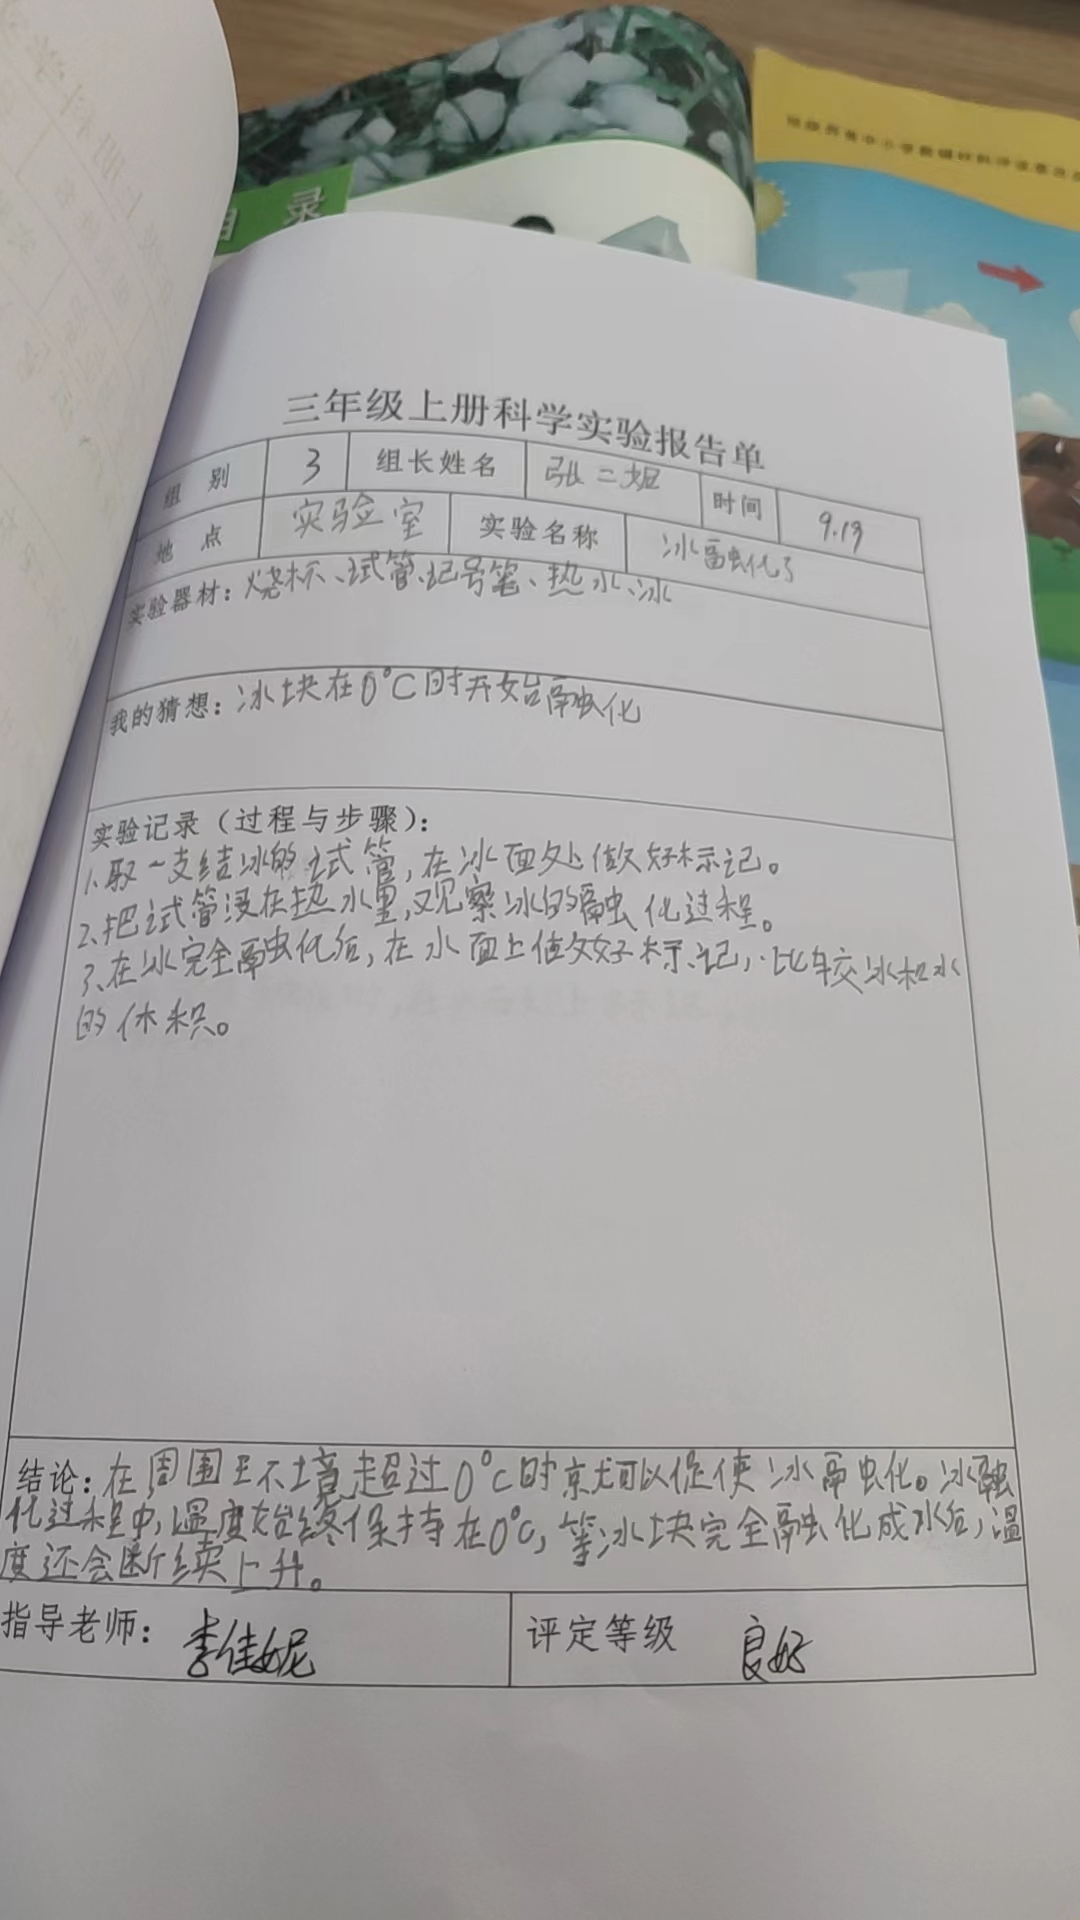 目 录
三年级上册科学实验报告单
组 别 3 组长姓名 张二妞 时间 9.19
地 点 实验室 实验名称 冰融化了
实验器材：烧杯、试管、记号笔、热水、冰
我的猜想：冰块在0℃时开始融化
实验记录（过程与步骤）：
1、取一支结冰的试管，在冰面处做好标记。
2、把试管浸在热水里，观察冰的融化过程。
3、在冰完全融化后，在水面上做好标记，比较冰和水
的体积。
结论：在周围环境超过0℃时就可以促使冰融化。冰融
化过程中，温度始终保持在0℃，等冰块完全融化成水后，温
度还会断续上升。
指导老师：李佳妮 评定等级 良好